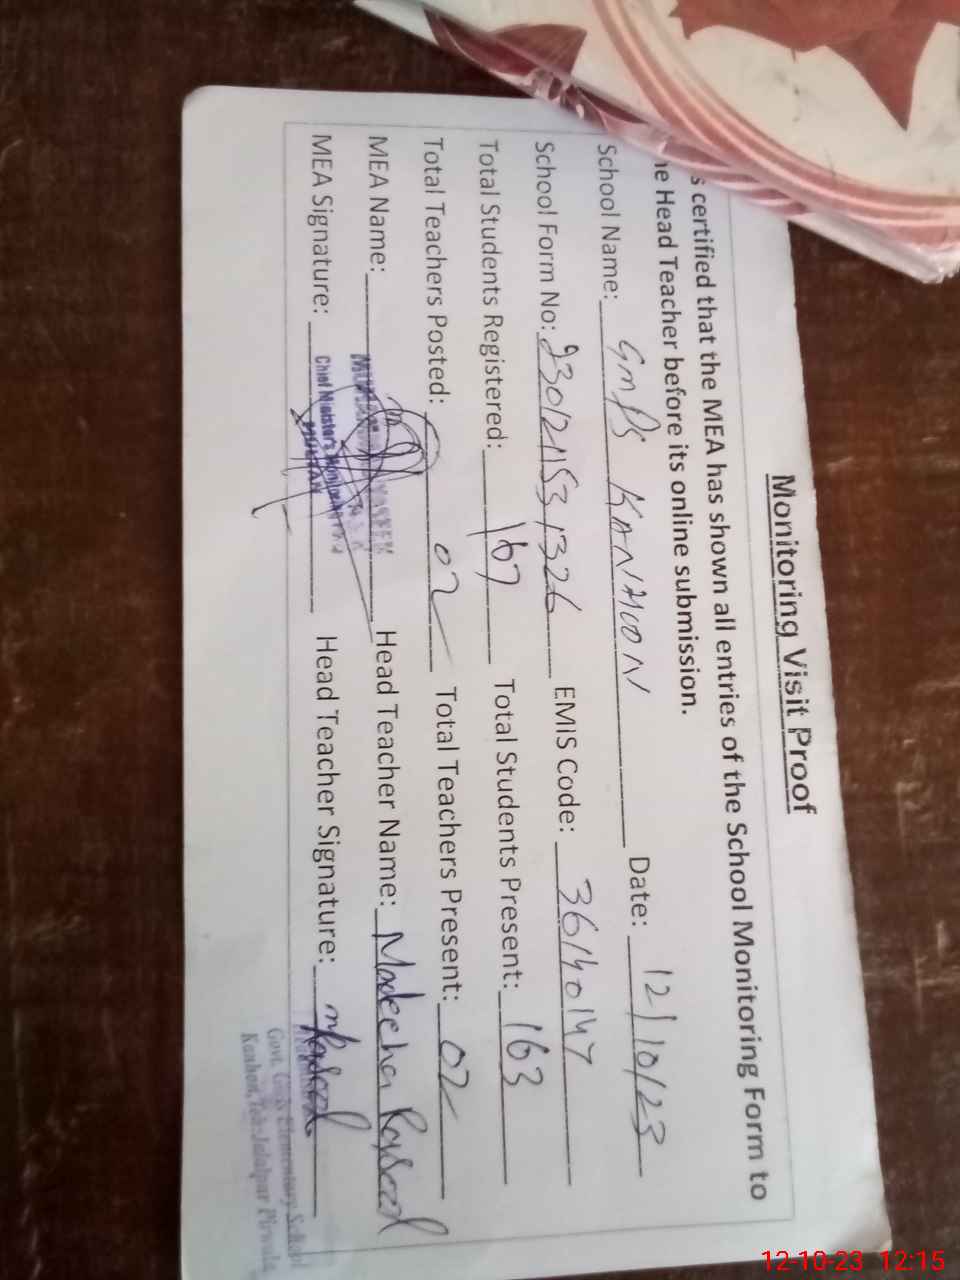 Monitoring Visit Proof
s certified that the MEA has shown all entries of the School Monitoring Form to
he Head Teacher before its online submission.
School Name: GMPS KANHOON Date: 12/10/23
School Form No: 2301211531326 EMIS Code: 36140147
Total Students Registered: 167 Total Students Present: 163
Total Teachers Posted: 02 Total Teachers Present: 02
MEA Name: Head Teacher Name: Madeeha Rasool
MEA Signature: Head Teacher Signature:
Chief Minister's
MULTAN
Govt. Girls Elementary School
Kanhon, Teh: Jalalpur Pirwala
12-10-23 12:15